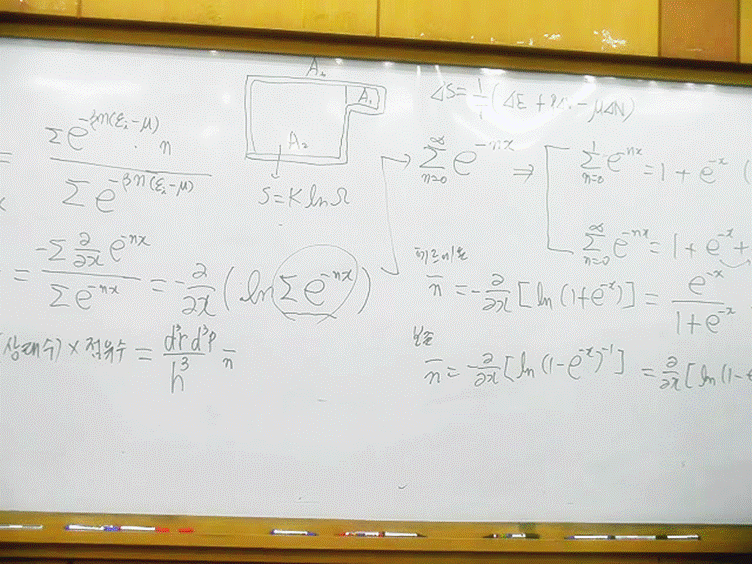 = Σe^{-βn(ε_i-μ)} · n / Σe^{-βn(ε_i-μ)}
A₁
A₂
S=K ln Ω
ΔS= (ΔE + - μΔN)
Σ_{n=0}^{∞} e^{-nx} ⇒
Σ_{n=0}^{1} e^{-nx} = 1 + e^{-x} (
Σ_{n=0}^{∞} e^{-nx} = 1 + e^{-x} +
= -Σ ∂/∂x e^{-nx} / Σe^{-nx} = -∂/∂x (ln Σe^{-nx})
페르미온
n̄ = -∂/∂x [ln (1+e^{-x})] = e^{-x} / 1+e^{-x}
(상태수) × 점유수 = d³r d³p / h³ n̄
보존
n̄ = -∂/∂x [ln (1-e^{-x})^{-1}] = ∂/∂x [ln (1-e